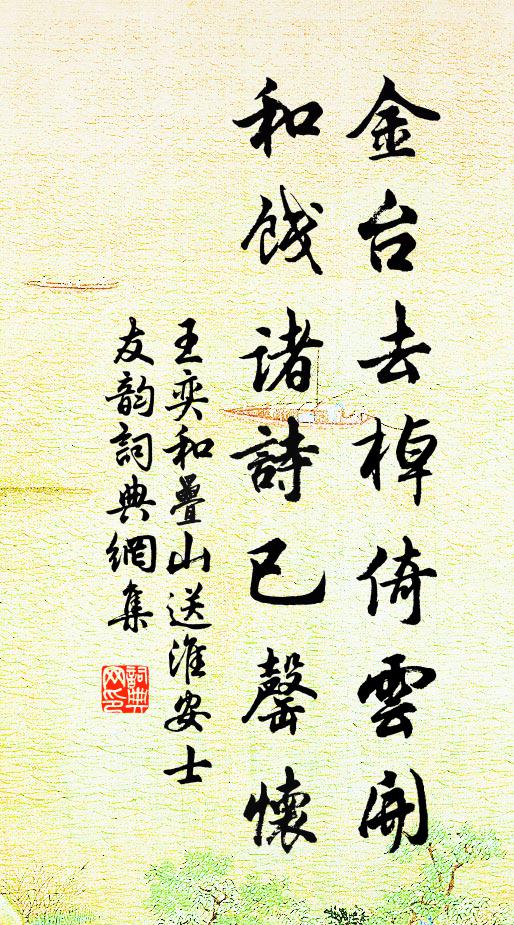 金台去棹倚雲開
和餞諸詩已罄懷
王奕和疊山送淮安士
友韵詞典網集
詞典网印